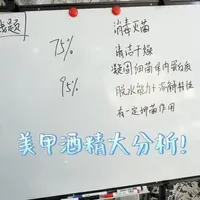 75%
消毒灭菌
清洁干燥
95%
凝固细菌体内蛋白质
脱水能力+溶解特性
有一定抑菌作用
美甲酒精大分析!